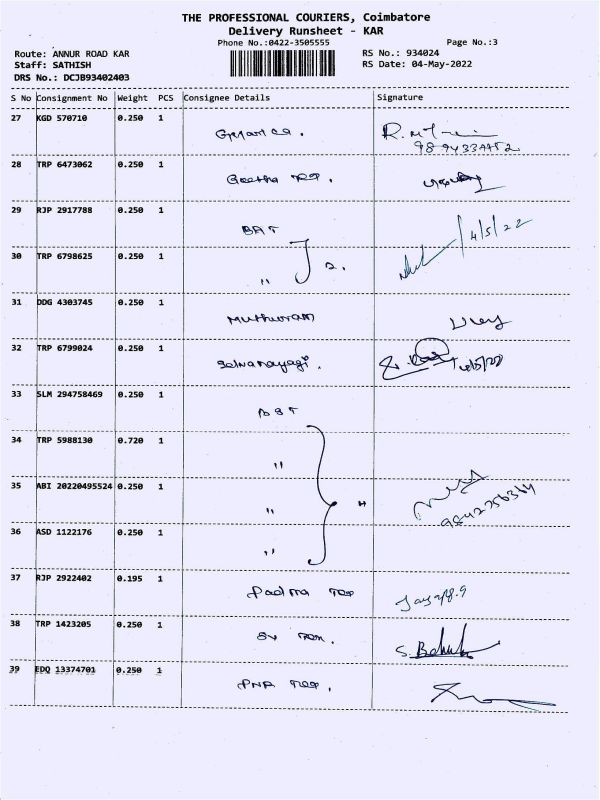 THE PROFESSIONAL COURIERS, Coimbatore
Delivery Runsheet - KAR
Phone No.:0422-3505555
Page No.:3
Route: ANNUR ROAD KAR
RS No.: 934024
Staff: SATHISH
RS Date: 04-May-2022
DRS No.: DCJB93402403
S No Consignment No Weight PCS Consignee Details Signature
27 KGD 570710 0.250 1
28 TRP 6473062 0.250 1 Geetha
29 RJP 2917788 0.250 1 4/5/22
30 TRP 6798625 0.250 1 " 2.
31 DDG 4303745 0.250 1 Muthuram
32 TRP 6799024 0.250 1 Selvanayagi.
33 SLM 294758469 0.250 1
34 TRP 5988130 0.720 1 "
35 ABI 20220495524 0.250 1 "
36 ASD 1122176 0.250 1 "
37 RJP 2922402 0.195 1 Padma Tex
38 TRP 1423205 0.250 1 SV
39 EDQ 13374701 0.250 1 PNR Tex.